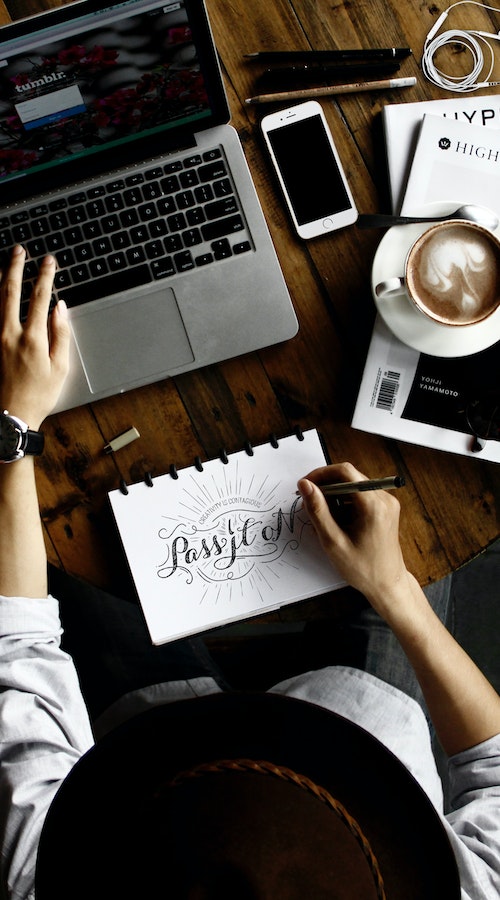 tumblr.
HYP
HIGH
YOHJI
YAMAMOTO
CREATIVITY IS CONTAGIOUS
Pass it on